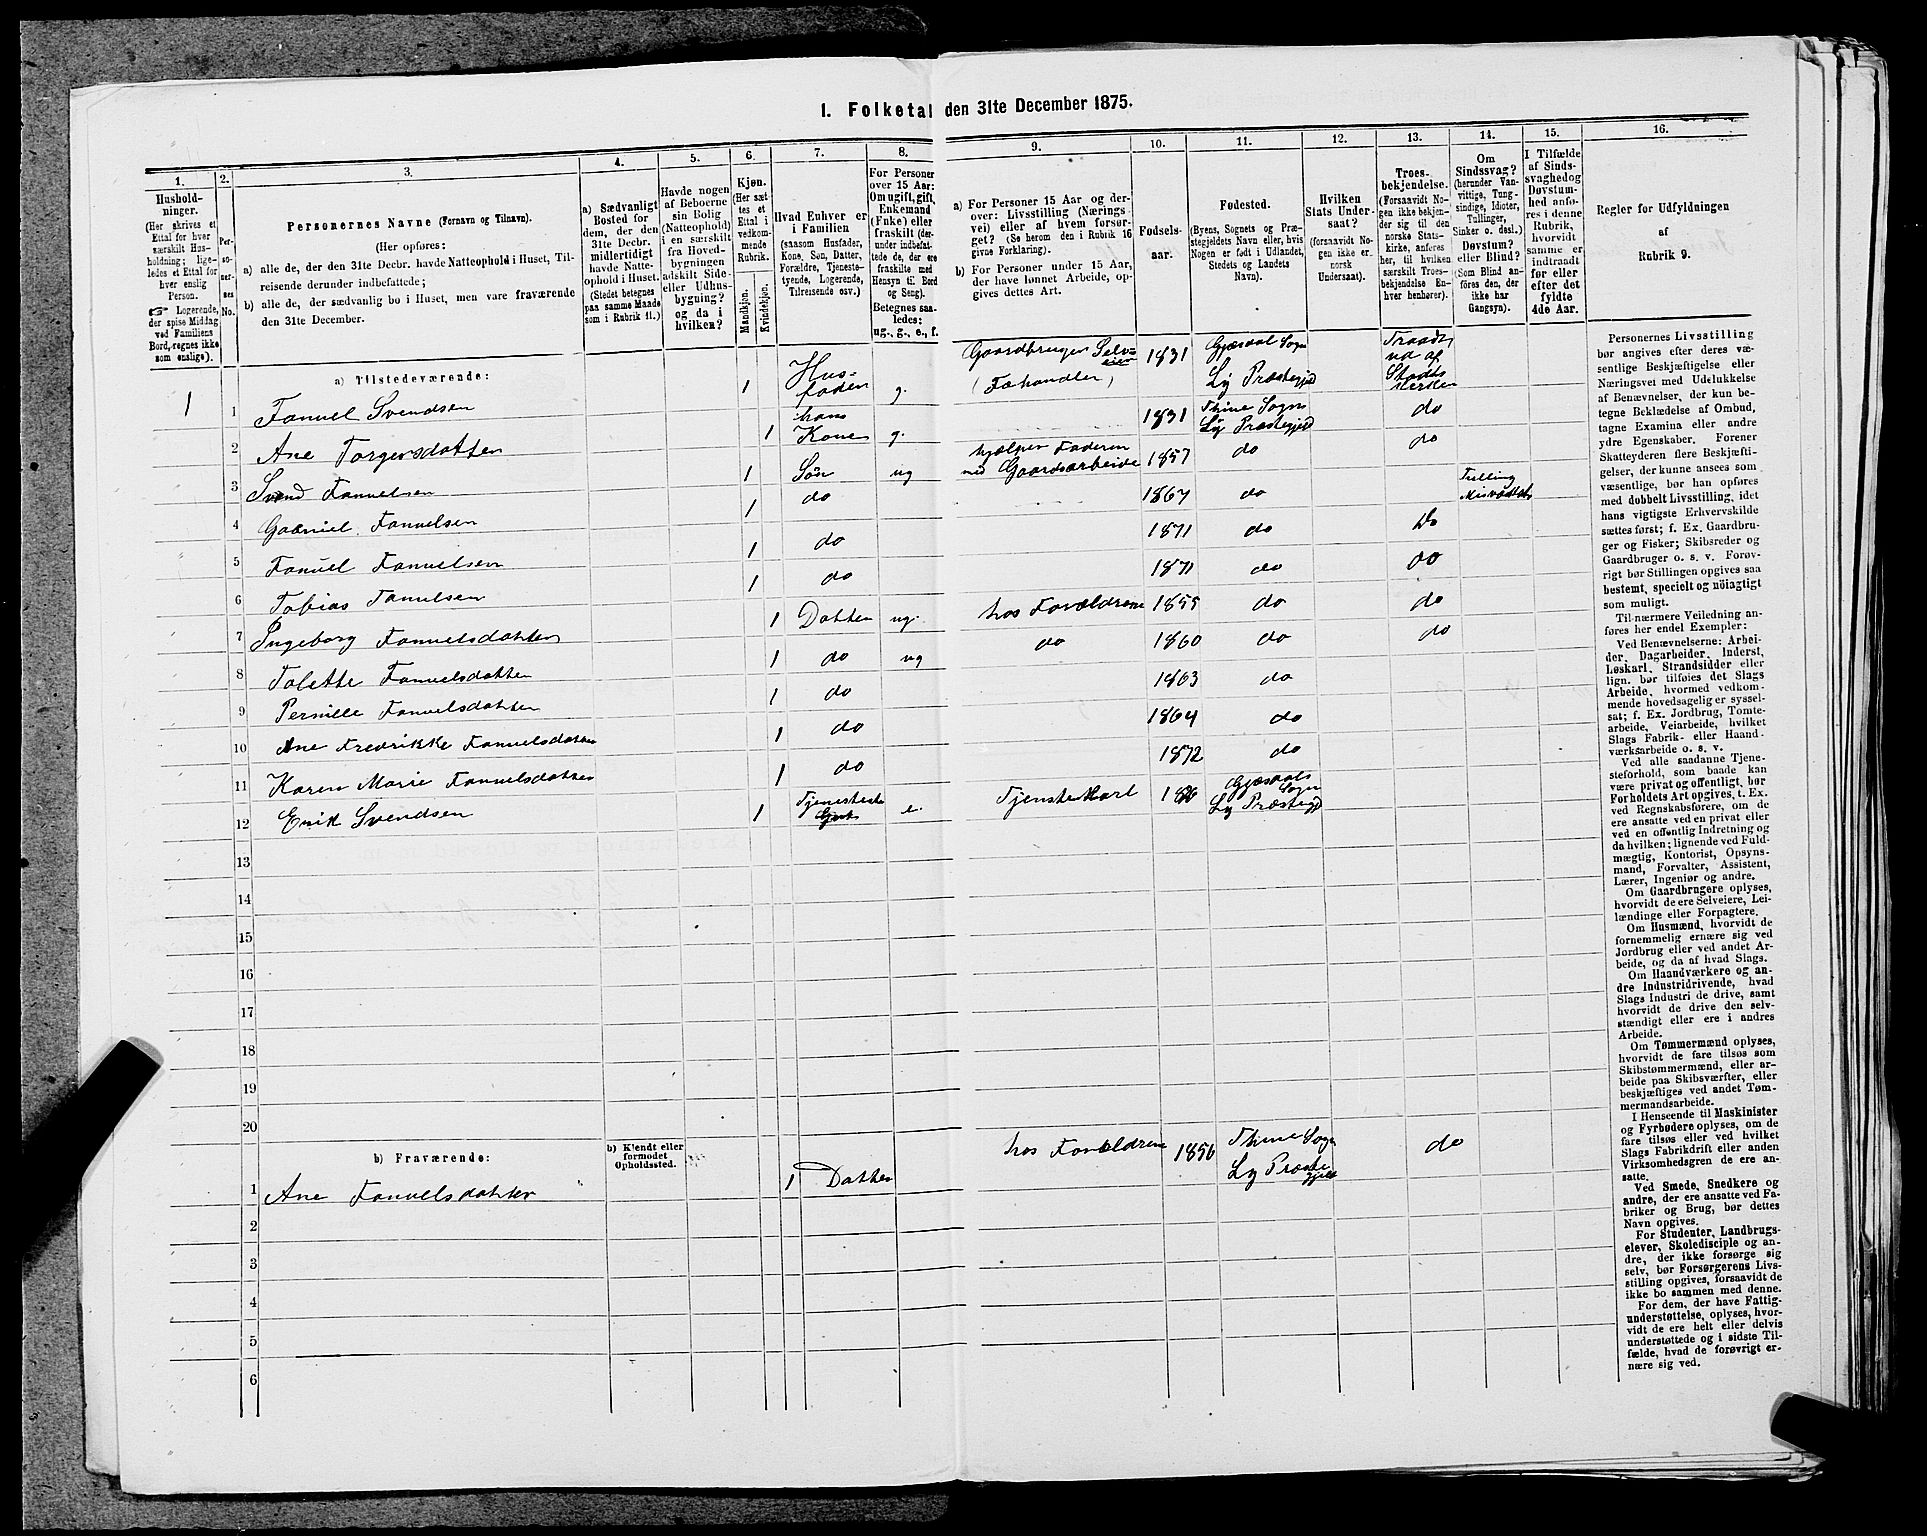 1. Folketal den 31te December 1875.
1.
2.
3.
4.
5.
6.
7.
8.
9.
10.
11.
12.
13.
14.
15.
16.
Hushold-
ninger.
(Her skrives et
Ettal for hver
særskilt Hus-
holdning; lige-
ledes et Ettal for
hver enslig
Person.
☞ Logerende,
der spise Middag
ved Familiens
Bord, regnes ikke
som enslige).
Per-
so-
ner-
nes
No.
Personernes Navne (Fornavn og Tilnavn).
(Her opføres:
a) alle de, der den 31te Decbr. havde Natteophold i Huset, Til-
reisende derunder indbefattede;
b) alle de, der sædvanlig bo i Huset, men vare fraværende
den 31te December.
a) Sædvanligt
Bosted for
dem, der den
31te Decbr.
midlertidigt
havde Natte-
ophold i Huset.
(Stedet betegnes
paa samme Maade
som i Rubrik 11.)
Havde nogen
af Beboerne
sin Bolig
(Natteophold)
i en særskilt
fra Hoved-
bygningen
adskilt Side-
eller Udhus-
bygning?
og da i
hvilken?
Kjøn.
(Her sæt-
tes et
Ettal i
vedkom-
mende
Rubrik.
Mandkjøn.
Kvindekjøn.
Hvad Enhver er
i Familien
(saasom Husfader,
Kone, Søn, Datter,
Forældre, Tjeneste-
tyende, Logerende,
Tilreisende osv.)
For Personer
over 15 Aar:
Om ugift, gift,
Enkemand
(Enke) eller
fraskilt (der-
under indbefat-
tede de, der ere
fraskilte med
Hensyn til Bord
og Seng).
Betegnes saa-
ledes:
ug., g., e., f.
a) For Personer 15 Aar og der-
over: Livsstilling (Nærings-
vei) eller af hvem forsør-
get? (Se herom den i Rubrik 16
givne Forklaring).
b) For Personer under 15 Aar,
der have lønnet Arbeide, op-
gives dettes Art.
Fødsels-
aar.
Fødested.
(Byens, Sognets og Præ-
stegjeldets Navn eller, hvis
Nogen er født i Udlandet,
Stedets og Landets
Navn).
Hvilken
Stats Under-
saat?
(forsaavidt No-
gen ikke er
norsk
Undersaat).
Troes-
bekjendelse.
(Forsaavidt No-
gen ikke bekjen-
der sig til den
norske Stats-
kirke, anføres
her, til hvilken
særskilt Troes-
bekjendelse En-
hver henhører).
Om
Sindssvag?
(herunder Van-
vittige, Tung-
sindige, Idioter,
Tullinger,
Sinker o. desl.)
Døvstum?
eller Blind?
(Som Blind an-
føres den, der
ikke har
Gangsyn).
I Tilfælde
af Sinds-
svaghed og
Døvstum-
hed anfø-
res i denne
Rubrik,
hvorvidt
samme er
indtraadt
før eller
efter det
fyldte
4de Aar.
Regler for Udfyldningen
af
Rubrik 9.
a) Tilstedeværende:
1 1 Fanuel Svendsen 1 Hus-
fader g. Gaardbruger Selv-
eier
(Fæhandler) 1831 Gjæsdal Sogn
Ly Præstegjed Traadt
ud af
Stadts
kerken
2 Ane Torgersdatter 1 hans
Kone g. 1831 Thime Sogn
Ly Præstegjed do
3 Svend Fanuelsen 1 Søn ug hjælper Faderen
med Gaardsarbeide 1857 do do
4 Gabriel Fanuelsen 1 do 1867 do Tulling
5 Fanuel Fanuelsen 1 do 1871 do Do
6 Tobias Fanuelsen 1 do 1871 do do
7 Ingeborg Fanuelsdatter 1 Datter ug. hos Forældrene 1855 do do
8 Tolette Fanuelsdatter 1 do ug do 1860 do do
9 Pernille Fanuelsdatter 1 do 1863 do
10 Ane Fredrikke Fanuelsdatter 1 do 1864 do
11 Karen Marie Fanuelsdatter 1 do 1872 do
12 Erik Svendsen 1 e. Tjenstekarl Gjæsdals
Sogn
Ly Præstegjd
13
14
15
16
17
18
19
20
b) Fraværende:
b) Kjendt eller
formodet
Opholdssted.
1 Ane Fanuelsdatter 1 Datter hos Forældrene 1856 Thime Sogn
Ly Præste
gjeld do
2
3
4
5
6
Personernes Livsstilling
bør angives efter deres væ-
sentlige Beskjæftigelse eller
Næringsvei med Udelukkelse
af Benævnelser, der kun be-
tegne Beklædelse af Ombud,
tagne Examina eller andre
ydre Egenskaber. Forener
Skatteyderen flere Beskjæfti-
gelser, der kunne ansees som
væsentlige, bør han opføres
med dobbelt Livsstilling, idet
hans vigtigste Erhvervskilde
sættes først; f. Ex. Gaardbru-
ger og Fisker; Skibsreder og
Gaardbruger o. s. v. Forøv-
rigt bør Stillingen opgives saa
bestemt, specielt og nöiagtigt
som muligt.
Til nærmere Veiledning an-
føres her endel Exempler:
Ved Benævnelserne: Arbei-
der, Dagarbeider, Inderst,
Løskarl, Strandsidder eller
lign. bør tilføies det Slags
Arbeide, hvormed vedkom-
mende hovedsagelig er syssel-
sat; f. Ex. Jordbrug, Tomte-
arbeide, Veiarbeide, hvilket
Slags Fabrik- eller Haand-
værksarbeide o. s. v.
Ved alle saadanne Tjene-
steforhold, som baade kan
være privat og offentligt, bør
Forholdets Art opgives, t. Ex.
ved Regnskabsførere, om de
ere ansatte ved en privat eller
ved en offentlig Indretning og
da hvilken; lignende ved Fuld-
mægtig, Kontorist, Opsyns-
mand, Forvalter, Assistent,
Lærer, Ingeniør og andre.
Om Gaardbrugere oplyses,
hvorvidt de ere Selveiere, Lei-
lændinge eller Forpagtere.
Om Husmænd, hvorvidt de
fornemmelig ernære sig ved
Jordbrug eller ved andet Ar-
beide, og da af hvad Slags.
Om Haandværkere og an-
dre Industridrivende, hvad
Slags Industri de drive, samt
hvorvidt de drive den selv-
stændigt eller ere i andres
Arbeide.
Om Tømmermænd oplyses,
hvorvidt de fare tilsøs som
Skibstømmermænd, eller ar-
beide paa Skibsværfter, eller
beskjæftiges ved andet Tøm-
mermandsarbeide.
I Henseende til Maskinister
og Fyrbødere oplyses, om de
fare tilsøs eller ved hvilket
Slags Fabrikdrift eller anden
Virksomhedsgren de ere an-
satte.
Ved Smede, Snedkere og
andre, der ere ansatte ved Fa-
briker og Brug, bør dettes
Navn opgives.
For Studenter, Landbrugs-
elever, Skoledisciple og an-
dre, der ikke forsørge sig
selv, bør Forsørgerens Livs-
stilling opgives, forsaavidt de
ikke bo sammen med denne.
For dem, der have Fattig-
understøttelse, oplyses, hvor-
vidt de ere helt eller delvis
understøttede og i sidste Til-
fælde, hvad de forøvrigt er-
nære sig ved.